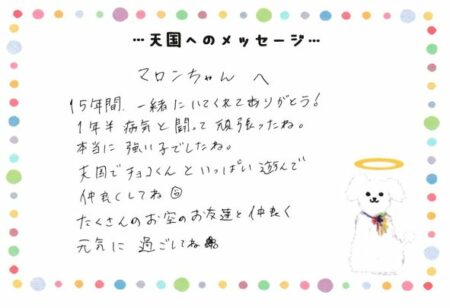 …天国へのメッセージ…
マロンちゃん へ
15年間、一緒にいてくれてありがとう!
1年半 病気と闘って 頑張ったね。
本当に 強い子でしたね。
天国でチョコくんと いっぱい 遊んで
仲良くしてね
たくさんのお空のお友達と仲良く
元気に 過ごしてね